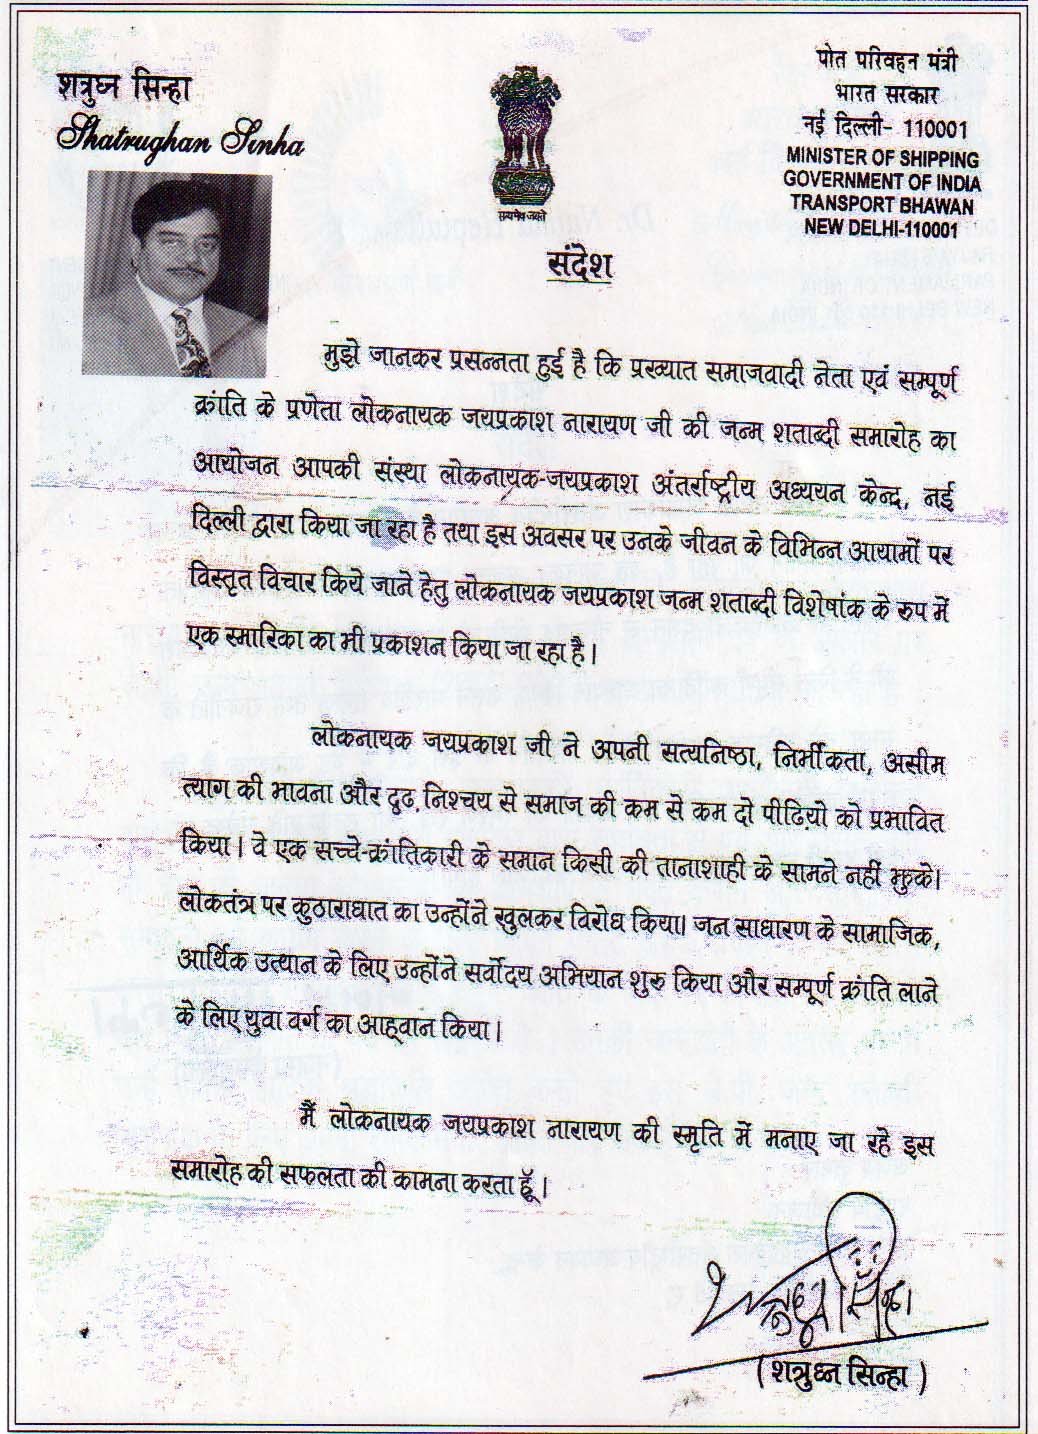 शत्रुघ्न सिन्हा
Shatrughan Sinha
सत्यमेव जयते
पोत परिवहन मंत्री
भारत सरकार
नई दिल्ली- 110001
MINISTER OF SHIPPING
GOVERNMENT OF INDIA
TRANSPORT BHAWAN
NEW DELHI-110001
संदेश
मुझे जानकर प्रसन्नता हुई है कि प्रख्यात समाजवादी नेता एवं सम्पूर्ण
क्रांति के प्रणेता लोकनायक जयप्रकाश नारायण जी की जन्म शताब्दी समारोह का
आयोजन आपकी संस्था लोकनायक-जयप्रकाश अंतर्राष्ट्रीय अध्ययन केन्द्र, नई
दिल्ली द्वारा किया जा रहा है तथा इस अवसर पर उनके जीवन के विभिन्न आयामों पर
विस्तृत विचार किये जाने हेतु लोकनायक जयप्रकाश जन्म शताब्दी विशेषांक के रुप में
एक स्मारिका का भी प्रकाशन किया जा रहा है।
लोकनायक जयप्रकाश जी ने अपनी सत्यनिष्ठा, निर्भीकता, असीम
त्याग की भावना और दृढ़ निश्चय से समाज की कम से कम दो पीढ़ियो को प्रभावित
किया। वे एक सच्चे-क्रांतिकारी के समान किसी की तानाशाही के सामने नहीं झुके।
लोकतंत्र पर कुठाराघात का उन्होंने खुलकर विरोध किया। जन साधारण के सामाजिक,
आर्थिक उत्थान के लिए उन्होंने सर्वोदय अभियान शुरु किया और सम्पूर्ण क्रांति लाने
के लिए युवा वर्ग का आह्वान किया।
मैं लोकनायक जयप्रकाश नारायण की स्मृति में मनाए जा रहे इस
समारोह की सफलता की कामना करता हूँ।
(शत्रुघ्न सिन्हा)